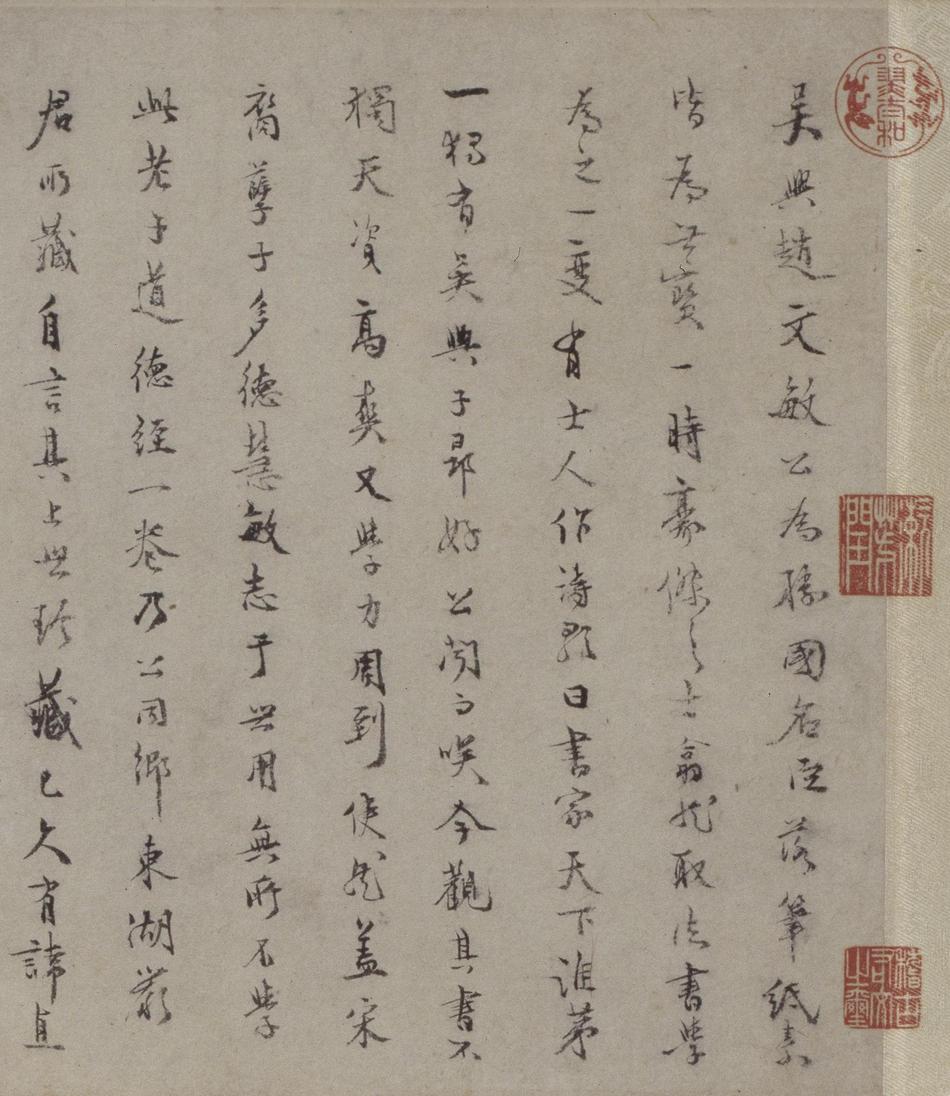 吳興趙文敏公為勝國名臣落筆紙素
皆為世寶一時豪傑之士翕然取法書學
為之一變有士人作詩酔曰書家天下誰第
一獨有吳興子昻好公聞而咲今觀其書不
獨天資高爽又學力周到使然蓋宋
裔孽子多德慧敏志于世用無所不學
此老子道德經一卷乃公同鄉東湖嚴
君所藏自言其上世珍藏已久有諱直